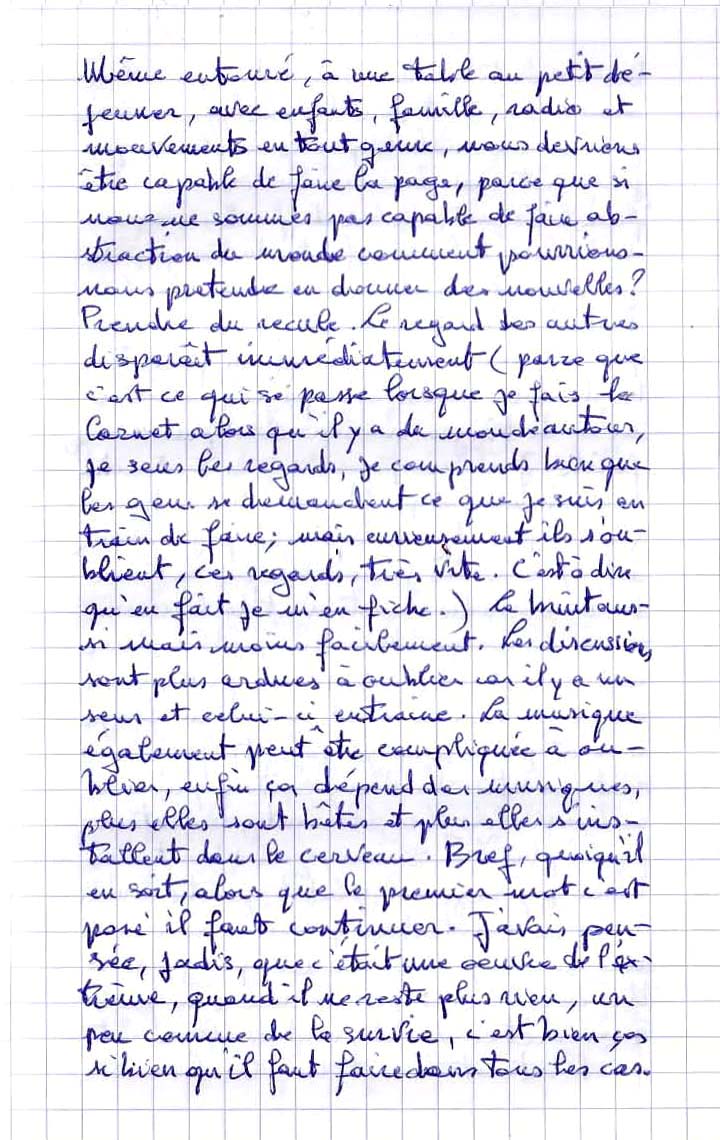 Même entouré, à une table au petit dé-
jeuner, avec enfants, famille, radio et
mouvements en tout genre, nous devrions
être capable de faire la page, parce que si
nous ne sommes pas capable de faire ab-
straction du monde comment pourrions-
nous pretendre en donner des nouvelles?
Prendre du recule. Le regard des autres
disparaît immédiatement (parce que
c'est ce qui se passe lorsque je fais le
Carnet alors qu'il y a du monde autour,
je sens les regards, je comprends bien que
les gens se demandent ce que je suis en
train de faire; mais curieusement ils s'ou-
blient, ces regards, très vite. C'est à dire
qu'en fait je m'en fiche.) Le bruit aus-
si mais moins facilement. Les discussions
sont plus ardues à oublier car il y a un
sens et celui-ci entraine. La musique
également peut être compliquée à ou-
blier, enfin ça dépend des musiques,
plus elles sont bêtes et plus elles s'ins-
tallent dans le cerveau. Bref, quoiqu'il
en soit, alors que le premier mot c'est
posé il faut continuer. J'avais pen-
sée, jadis, que c'était une oeuvre de l'ex-
trême, quand il ne reste plus rien, un
peu comme de la survie, c'est bien ça
si bien qu'il faut faire dans tous les cas.